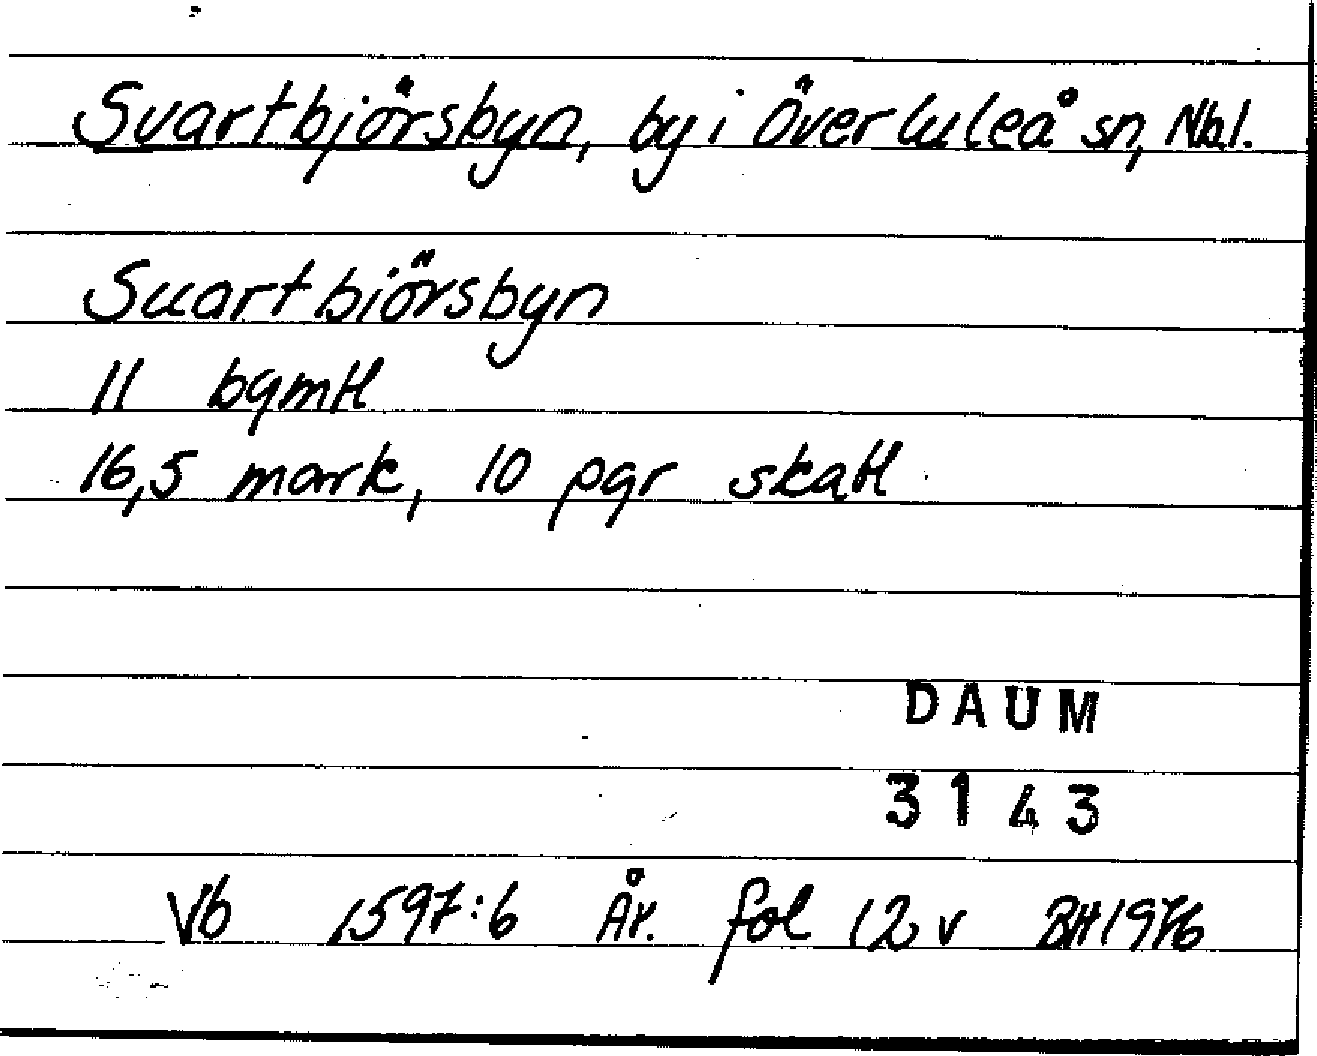 Svartbjörsbyn, by i Överluleå sn, Nbl.
Suartbiörsbyn
11 bqmtl
16,5 mark, 10 pgr skatt
DAUM
3143
Vb 1597:6 År. fol 12 v BH 1976